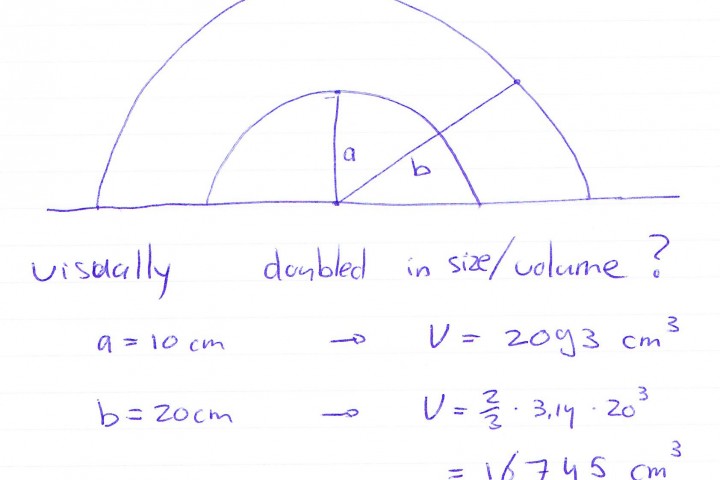 a
b
visually doubled in size/volume?
a = 10 cm → V = 2093 cm³
b = 20cm → V = 2/3 · 3,14 · 20³
= 16745 cm³